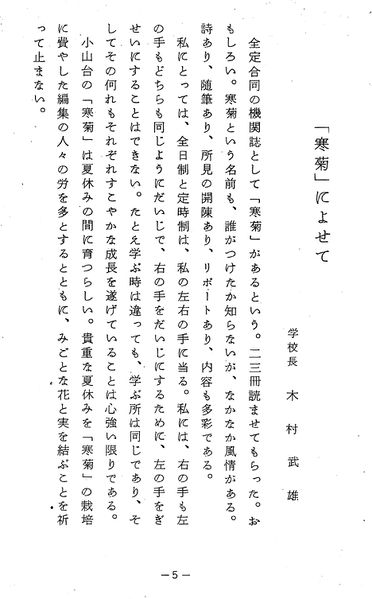 「寒菊」によせて
学校長 木村武雄
全定合同の機関誌として「寒菊」があるという。二三冊読ませてもらった。お
もしろい。寒菊という名前も、誰がつけたか知らないが、なかなか風情がある。
詩あり、随筆あり、所見の開陳あり、リポートあり、内容も多彩である。
私にとっては、全日制と定時制は、私の左右の手に当る。私には、右の手も左
の手もどちらも同じようにだいじで、右の手をだいじにするために、左の手をぎ
せいにすることはできない。たとえ学ぶ時は違っても、学ぶ所は同じであり、そ
してその何れもそれぞれすこやかな成長を遂げていることは心強い限りである。
小山台の「寒菊」は夏休みの間に育つらしい。貴重な夏休みを「寒菊」の栽培
に費やした編集の人々の労を多とするとともに、みごとな花と実を結ぶことを祈
って止まない。
—5—